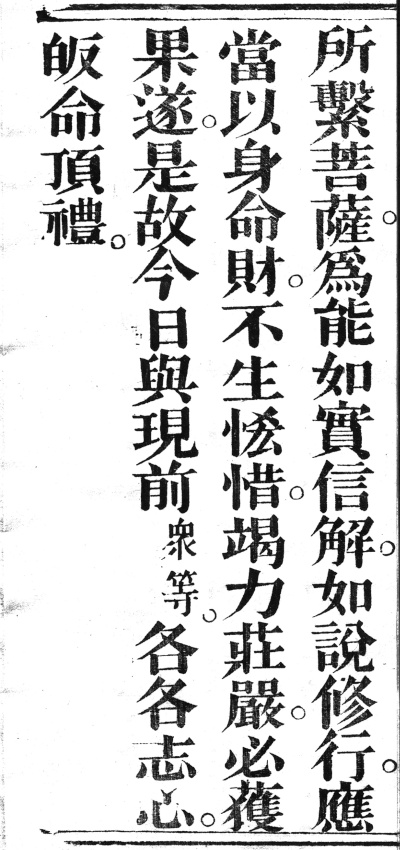 所繫菩薩。爲能如實信解。如說修行。應
當以身命財。不生悋惜。竭力莊嚴。必獲
果遂。是故今日與現前衆等。各各志心。
皈命頂禮。